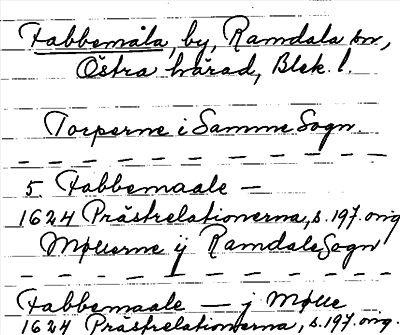 Fabbemåla, by, Ramdala sn,
Östra härad, Blek. l.
Torperne i Samme Sogn.
5 Fabbemaale —
1624 Prästrelationerna, s. 197. orig
Møllerne ij Ramdale Sogn
Fabbemaale — j Mølle
1624 Prästrelationerna, s. 197. orig.